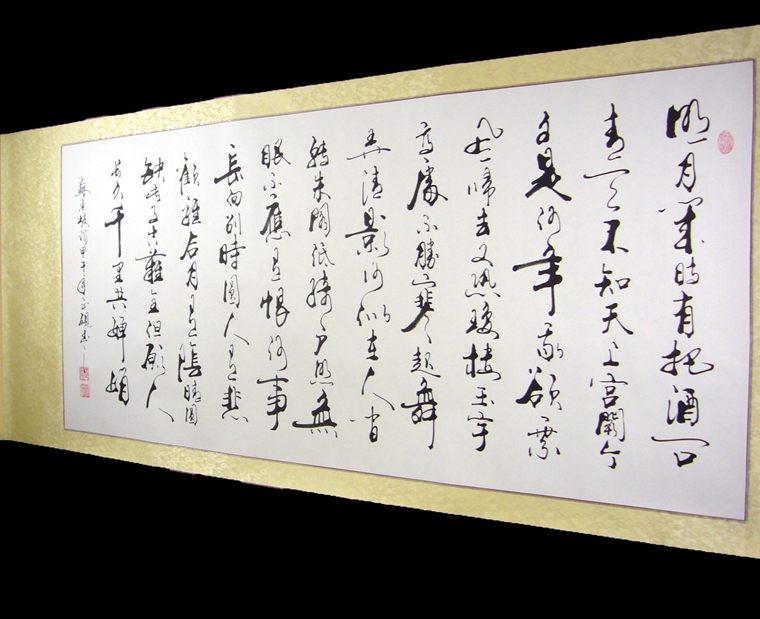 明月幾時有把酒问
青天不知天上宫闕今
夕是何年我欲乘
风歸去又恐瓊樓玉宇
高處不勝寒起舞
弄清影何似在人间
转朱阁低绮户照無
眠不應有恨何事
長向别時圓人有悲
歡離合月有陰晴圓
缺此事古難全但願人
長久千里共嬋娟
蘇東坡词甲午年